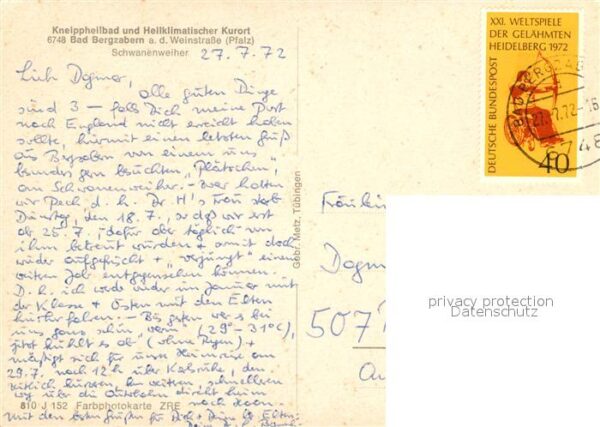 Kneippheilbad und Heilklimatischer Kurort
6748 Bad Bergzabern a. d. Weinstraße (Pfalz)
Schwanenweiher
27.7.72
Lieb Dagmar,
alle guten Dinge
sind 3 – falls Dich meine Post
nach England nicht erreicht haben
sollte, hiermit einen letzten Gruß
aus Bgzabern von einem uns
besonders gern "Plätzchen",
am Schwanenweiher. – hatten
wir Pech, d. h. Dr. H's Frau starb
Dienstag, den 18.7., so daß wir erst
ab 25.7. dafür aber täglich von
ihm betreut wurden + somit doch
wieder aufgefrischt + "verjüngt" einem
weiteren Jahr entgegensehen können.
D. h. ich werde wieder im Januar mit
der Klasse + Ostern mit den Eltern
hinterfahren. – Bis gestern war es bei
uns ganz schön "warm" (29°-31°C),
jetzt kühlt es ab (ohne Regen) +
mäßigt sich für unsre Heimreise am
29.7. nach 12h über Karlsruhe, den
hin weiteren, schnelleren
Weg über die Autobahn direkt heim
nach
Mit den besten Grüßen für Dich + Deine lb Eltern
810 J 152 Farbphotokarte ZRE
Gebr. Metz, Tübingen
XXI. WELTSPIELE
DER GELÄHMTEN
HEIDELBERG 1972
DEUTSCHE BUNDESPOST
40
27.7.72-16
Fräulein
Dagmar
507
privacy protection
Datenschutz